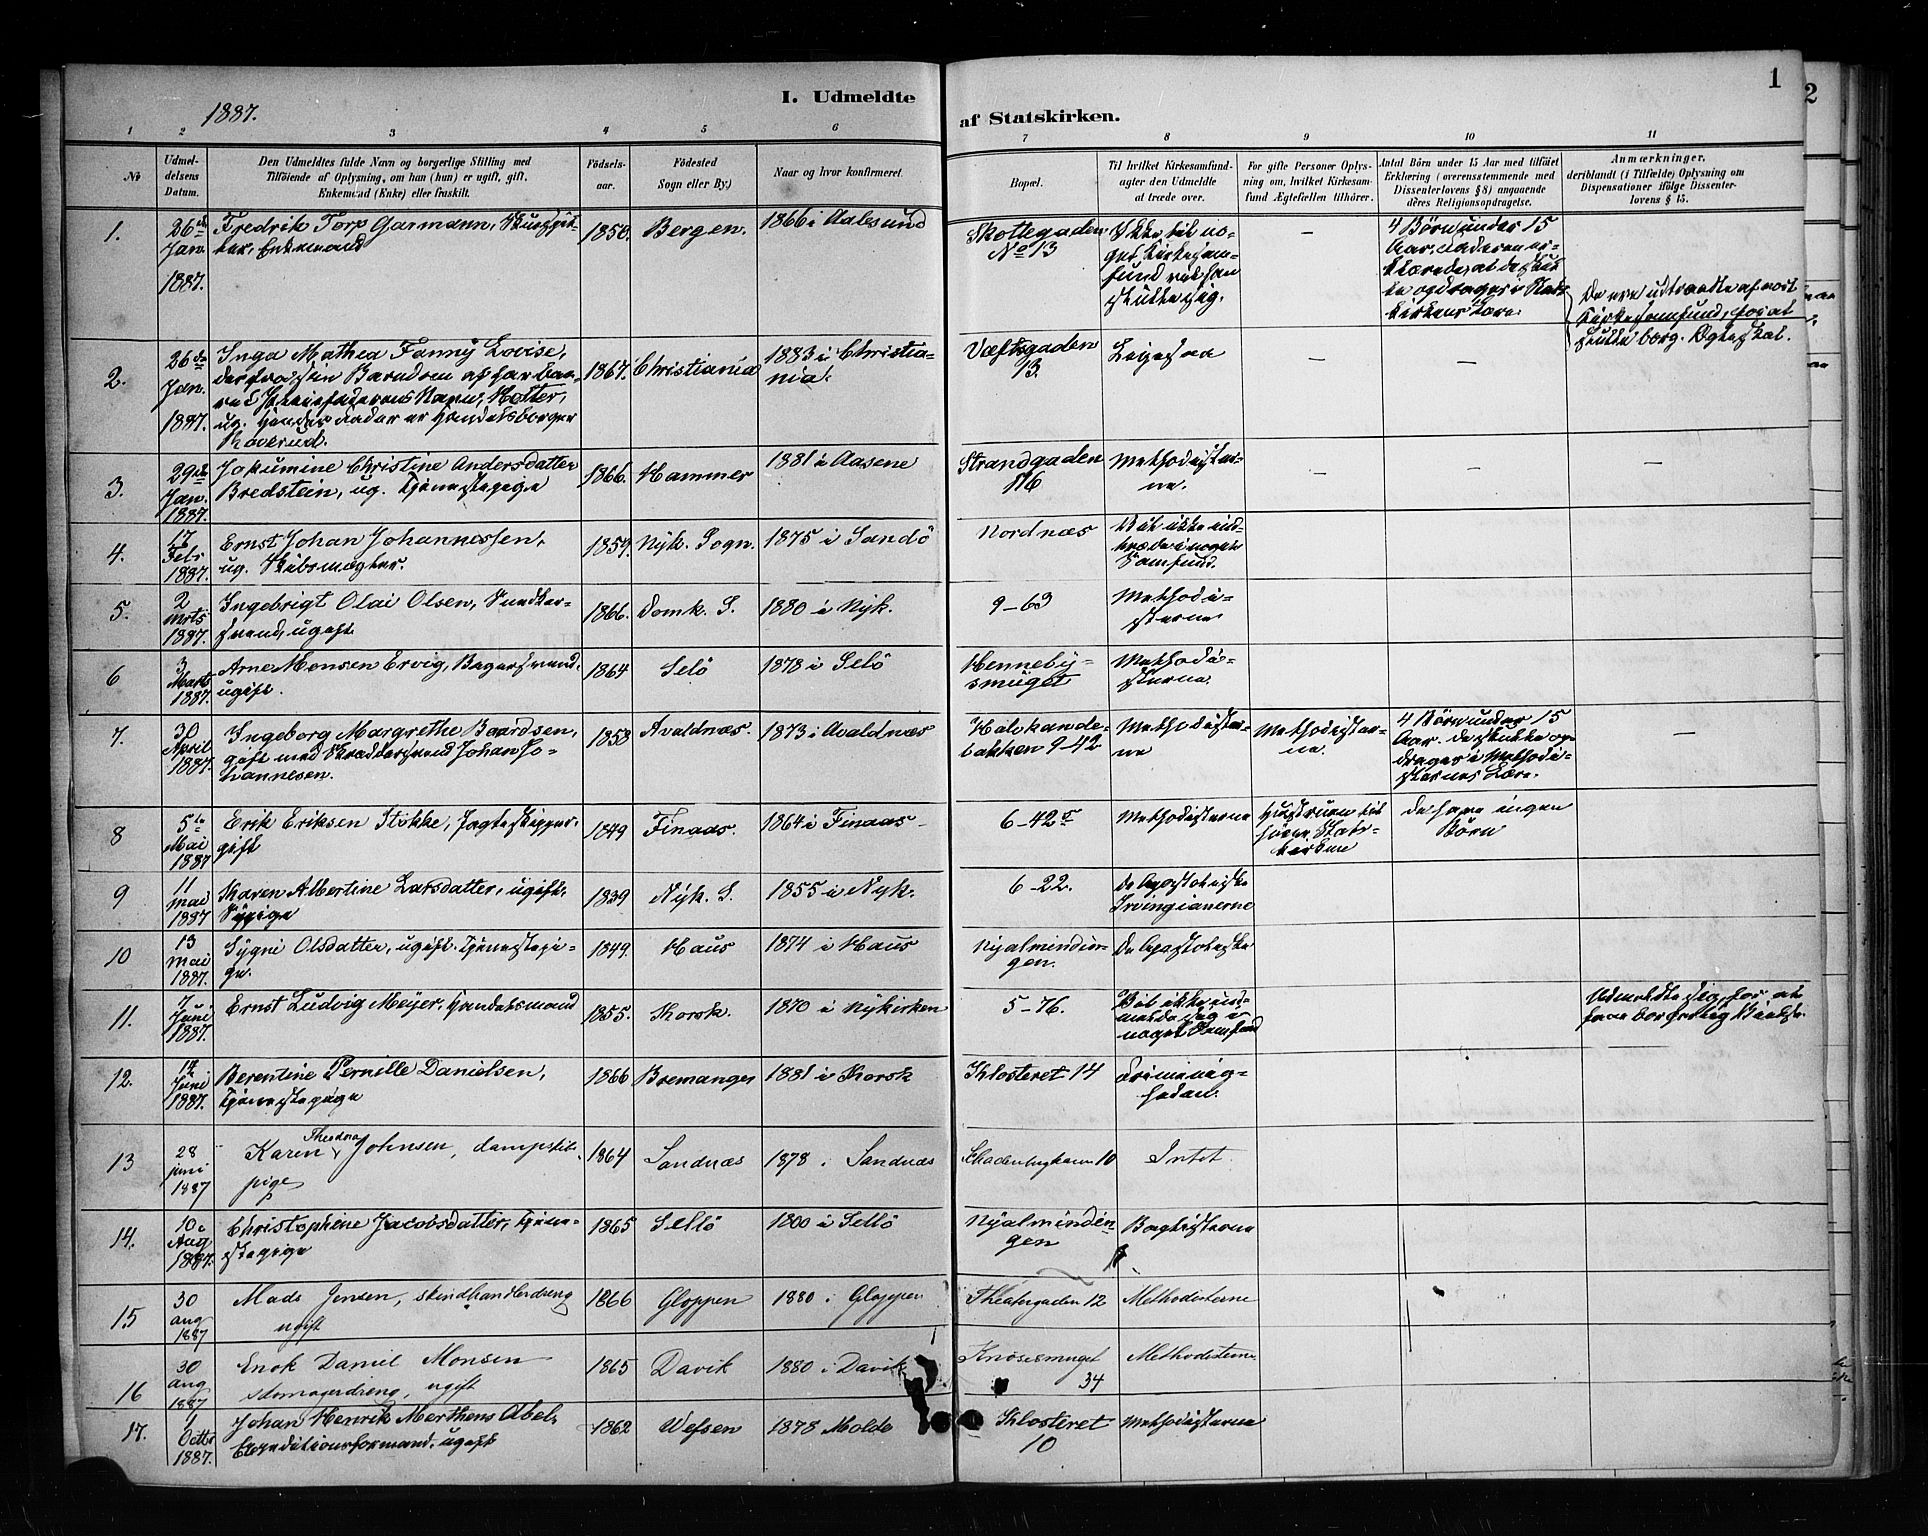 1887.
I. Udmeldte
af Statskirken.
1
2
1 2 3 4 5 6 7 8 9 10 11
No
Udmel-
delsens
Datum.
Den Udmeldtes fulde Navn og borgerlige Stilling med
Tilföiende af Oplysning, om han (hun) er ugift, gift.
Enkemand (Enke) eller fraskilt.
Födsels-
aar.
Födested
Sogn eller By.)
Naar og hvor konfirmeret.
Bopæl.
Til hvilket Kirkesamfund-
agter den Udmeldte
at træde over.
For gifte Personer Oplys-
ning om, hvilket Kirkesam-
fund Ægtefællen tilhører.
Antal Börn under 15 Aar med tilföiet
Erklæring (overensstemmende med
Dissenterlovens § 8) angaaende
deres Religionsopdragelse.
Anmærkninger,
deriblandt (i Tilfælde) Oplysning om
Dispensationer ifölge Dissenter-
lovens § 15.
1.
26de
Jan.
1887.
Fredrik Torp Garmann,
Enkemand
1850.
Bergen.
1866 i Aalesund
Skottegaden
No 13
Ikke til no-
get Kirkesam-
fund vil han
slutte sig.
–
4 Børn under 15
Aar,
at de skul-
le opdrages i Stats-
kirkens Lære.
De ere udtraadte af vort
Kirkesamfund, for at
slutte borg. Ægteskab.
2.
26de
Jan.
1887.
Inga Mathea Fanny Lovise,
Stedfaderens Navn, Holter,
ug. Hendes Fader er Handelsborger
1867.
Christiania
1883 i Christia-
nia.
13.
Ligesaa
–
–
3.
29de
Jan.
1887.
Jokumine Christine Andersdatter
Bredstein, ug. Tjenestepige
1866.
Hammer
1881 i Aasene
Strandgaden
116
Methodister-
ne.
–
–
–
4.
17
Febr
1887.
Ernst Johan Johannessen,
ug. Skibsmægler.
1859.
Nyk. Sogn.
1875 i Sandö
Nordnæs
Vil ikke ind-
træde i noget
Samfund.
5.
2
Mrts
1887.
Ingebrigt Olai Olsen,
svend, ugift
1866.
Domk. S.
1880 i Nyk.
9–63
Methodi-
sterne
6
3
Marts
1887.
Arne Monsen Ervig, Bagersvend,
ugift.
1864
Selö
1878 i Selö
Henneby-
smuget
Methodi-
sterne.
7.
30
April
1887.
Ingeborg Margrethe Baardsen,
gift med Skræddersvend Johan Jo-
hannesen.
1858
Avaldnæs.
1873 i Avaldnæs
bakken 9-42
Methodister-
ne
Methodister-
ne.
4 Børn under 15
Aar. De skulle op-
drages i Methodi-
sternes Lære.
–
8
5te
Mai
1887
Erik Eriksen Stokke, Jagteskipper,
gift
1849
Finaas.
1864 i Finaas
6–42
Methodisterne
Hustruen til
hörer Stats-
kirken
De have ingen
Börn
9
11
Mai
1887
Maren Albertine Larsdatter, ugift,
Sypige
1839
Nyk. S.
1855 i Nyk.
6–22.
De Apostoliske
Irvingianerne
10
13
Mai
1887.
Sygni Olsdatter, ugift. Tjenestepi-
ge.
1849.
Haus
1874 i Haus
Nyalmindin-
gen.
De Apostoliske
11.
7
Juni
1887.
Ernst Ludvig Meyer, Handelsmand
1855.
Korsk.
1870 i Nykirken
5–76.
Vil ikke ind-
melde sig i
noget Samfund
Udmeldte sig, for at
faae borgerlig
12.
14
Juni
1887.
Berentine Pernille Danielsen,
Tjenestepige
1866
Bremanger
1881 i Korsk
Klosteret 14
Frimenig-
heden.
13
28
juni
1887
Karen Theodora Johnsen, dampskibs-
pige
1864
Sandnæs
1878 i Sandnæs
10
Intet.
14.
10
Aug
1887.
Christophine Jacobsdatter, Tjene-
stepige
1865
Sellö
1880 i Sellö
Nyalmindin-
gen
Baptisterne
15
30
aug
1887
Mads Jensen, skindhandlerdreng
ugift
1866
Gloppen
1880 i Gloppen
Theatergaden 12
Methodisterne
16
30
aug
1887
Enok Daniel Monsen
skomagerdreng, ugift
1865
Davik
1880 i Davik
Knösesmuget
34
Methodisterne
17.
1
Octbr
1887.
Johan Henrik Merthens Abel,
Expeditionsformand, ugift
1862
Vefsen
1878 Molde
Klosteret
10
Methodisterne